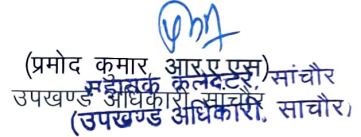 (प्रमोद कुमार, आर ए एस)
सहायक कलेक्टर, सांचौर
उपखण्ड अधिकारी सांचौर
(उपखण्ड अधिकारी, साचौर)